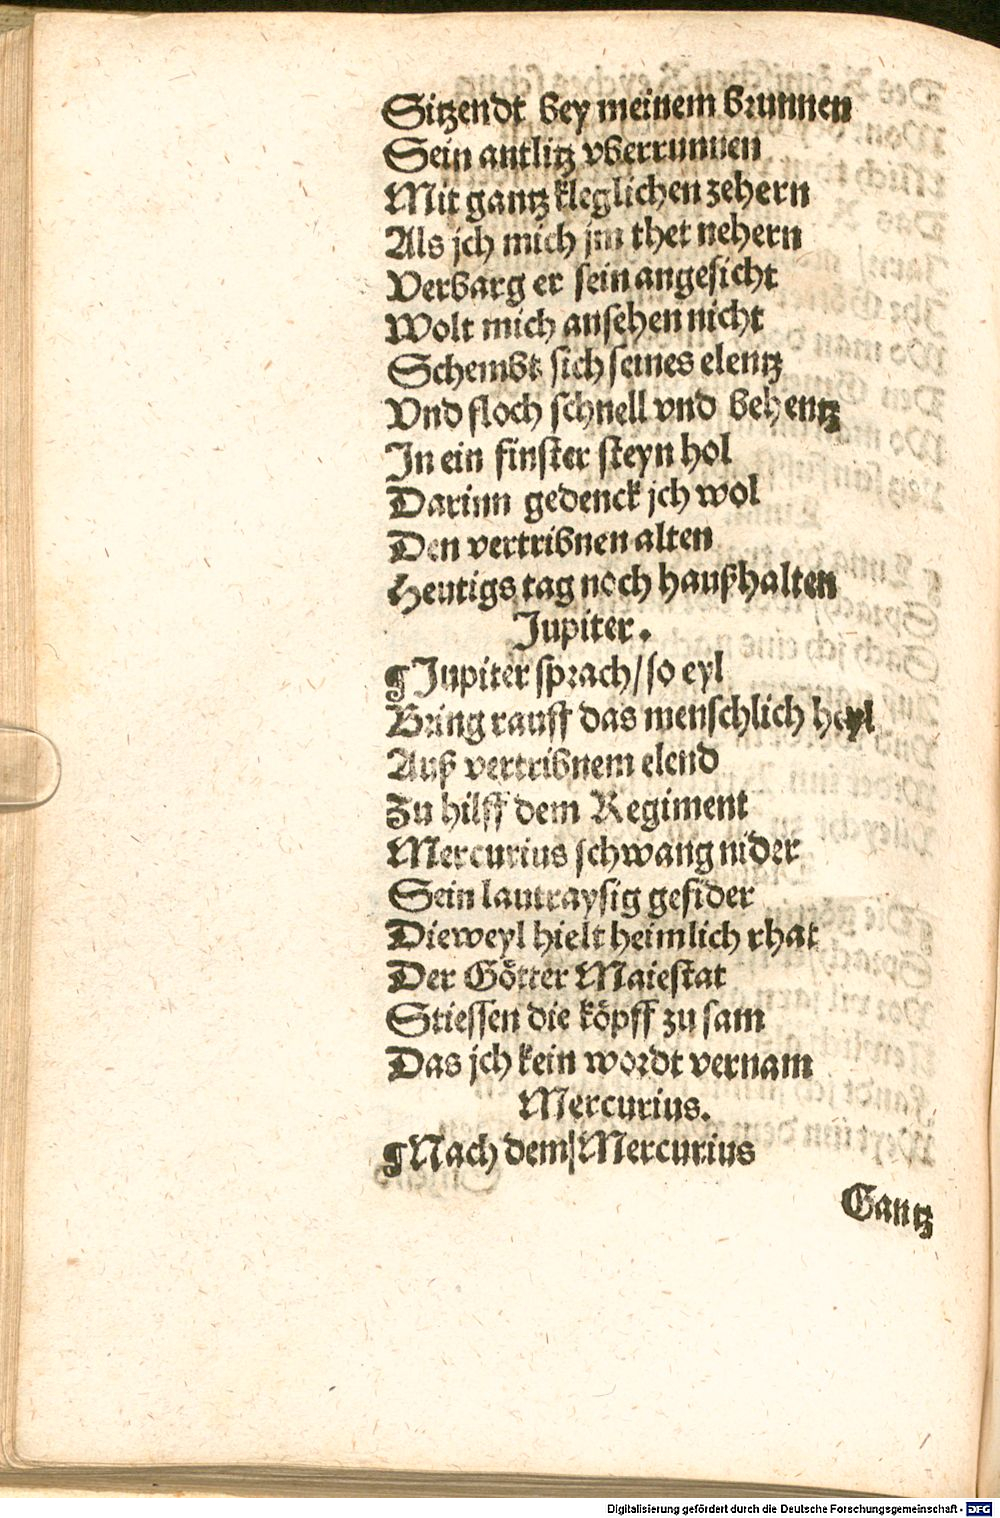 Sitzendt bey meinem brunnen
Sein antlitz vberrunnen
Mit gantz kleglichen zehern
Als jch mich jm thet nehern
Verbarg er sein angesicht
Wolt mich ansehen nicht
Schembt sich seines elentz
Vnd floch schnell vnd behentz
In ein finster steyn hol
Darinn gedenck jch wol
Den vertribnen alten
Heutigs tag noch haußhalten
Jupiter.
¶ Jupiter sprach/ so eyl
Bring rauff das menschlich heyl
Auß vertribnem elend
Zu hilff dem Regiment
Mercurius schwang nider
Sein lautraysig gefider
Dieweyl hielt heimlich rhat
Der Götter Maiestat
Stiessen die köpff zu sam
Das jch kein wordt vernam
Mercurius.
¶ Nach dem/ Mercurius
Gantz
Digitalisierung gefördert durch die Deutsche Forschungsgemeinschaft - DFG